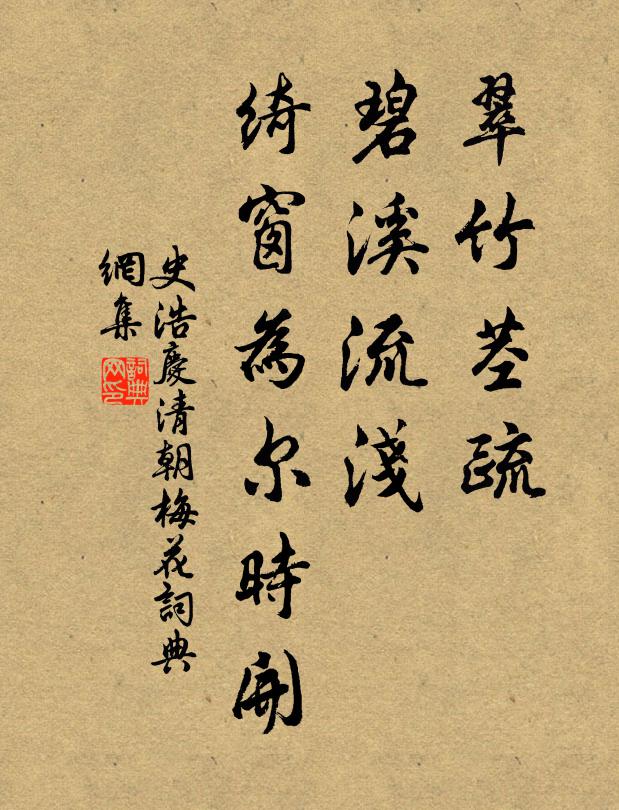 翠竹莖疏
碧溪流淺
綺窗為尔時開
史浩慶清朝梅花詞典
網集
詞典
网印